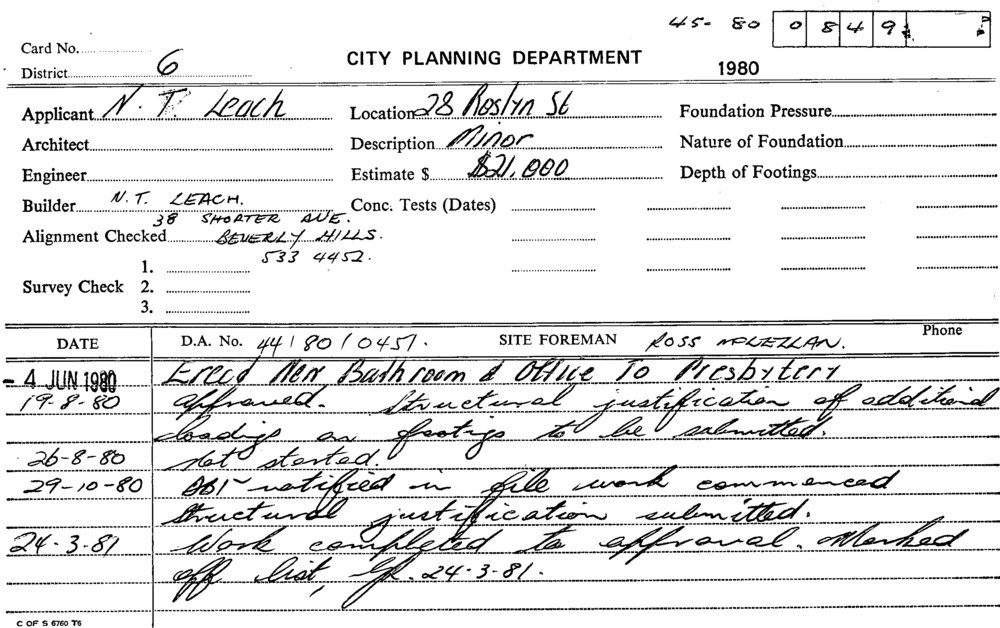 45- 80 0849
Card No.
District 6
CITY PLANNING DEPARTMENT
1980
Applicant N. T. Leach
Location 28 Roslyn St
Foundation Pressure
Architect
Description Minor
Nature of Foundation
Engineer
Estimate $ $21,000
Depth of Footings
Builder N.T. LEACH.
38 SHORTER AVE.
Conc. Tests (Dates)
Alignment Checked BEVERLY HILLS.
533 4452.
1.
Survey Check 2.
3.
DATE D.A. No. 44/80/0451. SITE FOREMAN ROSS McLELLAN. Phone
- 4 JUN 1980 Erect New Bathroom & Office To Presbytery
19-8-80 Approved. Structural justification of additional
loadings on footings to be submitted.
26-8-80 Not started.
29-10-80 notified in file work commenced
Structural justification submitted.
24-3-81 Work completed to approval. Marked
off list, 24-3-81.
C OF S 6760 T6